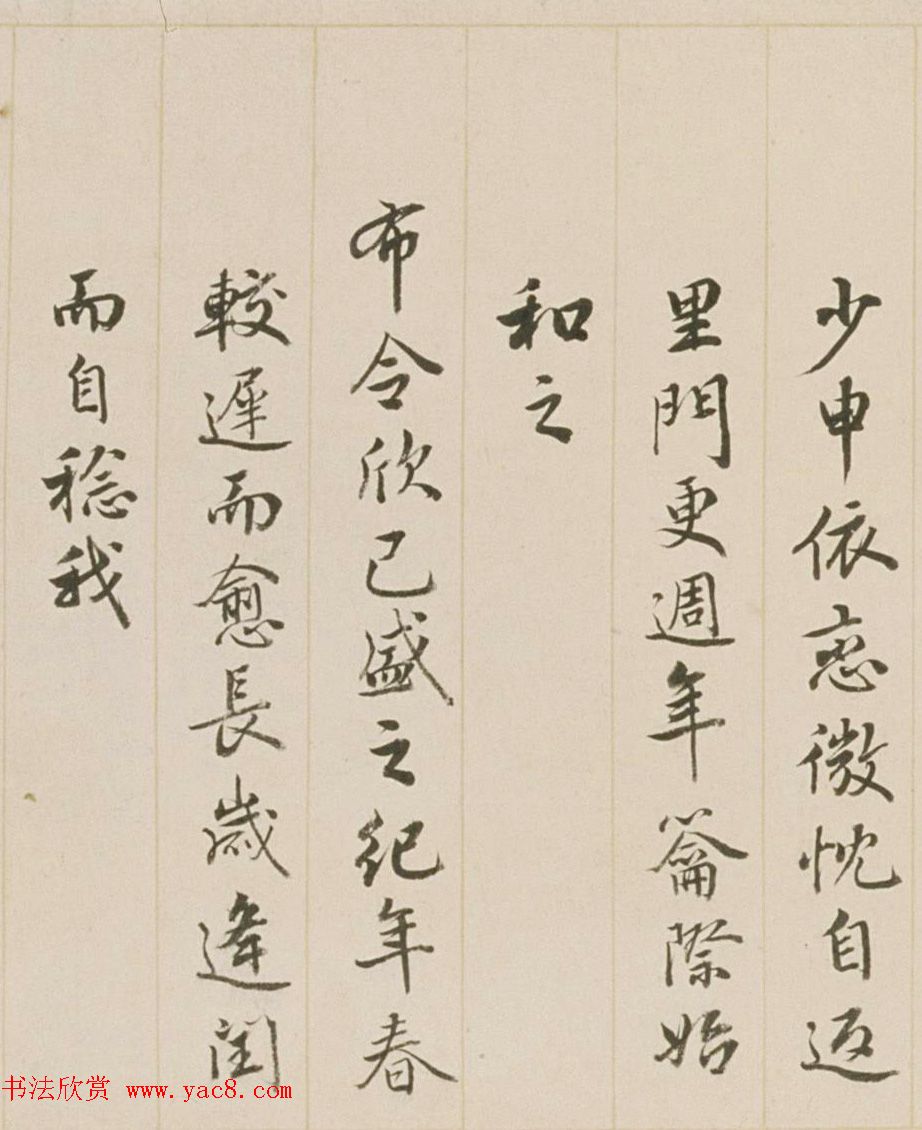 少申依恋微忱自返
里門更週年籥際始
和之
布令欣已盛之紀年春
較遲而愈長歲逢閏
而自稔我
书法欣赏 www.yac8.com